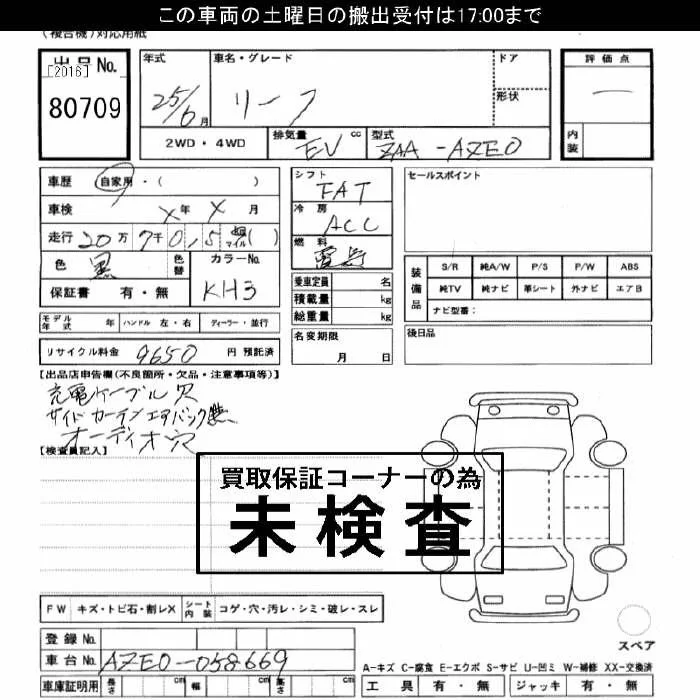 この車両の土曜日の搬出受付は17:00まで
(複合機)対応用紙
出品No.
[2016]
80709
年式
25/6月
車名・グレード
リーフ
ドア
形状
評価点
一
内装
2WD・4WD
排気量 EV cc
型式 ZAA-AZE0
車歴 自家用・( )
車検 X年 X月
走行 20万 7千 0,5 マイル( )
色 黒 色替
カラーNo. KH3
保証書 有・無
シフト FAT
冷房 ACC
燃料 電気
乗車定員 名
積載量 kg
総重量 kg
セールスポイント
装備品
S/R 純A/W P/S P/W ABS
純TV 純ナビ 革シート 外ナビ エアB
ナビ型番:
モデル年式 年 ハンドル 左・右 ディーラー・並行
名変期限 月 日
後日品
リサイクル料金 9650 円 預託済
【出品店申告欄(不良箇所・欠品・注意事項等)】
充電ケーブル欠
サイドカーテンエアバック無
オーディオ欠
【検査員記入】
買取保証コーナーの為
未検査
FW キズ・トビ石・割レX シート内装 コゲ・穴・汚レ・シミ・破レ・スレ
登録No.
車台No. AZE0-058669
車庫証明用 長さ cm 幅 cm 高さ cm
スペア
A-キズ C-腐食 E-エクボ S-サビ U-凹ミ W-補修 XX-交換済
工具 有・無 ジャッキ 有・無